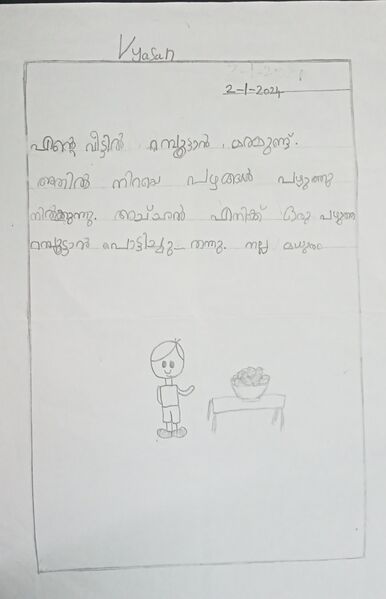 Vyasan
2-1-2024
എന്റെ വീട്ടിൽ റമ്പൂട്ടാൻ മരമുണ്ട്.
അതിൽ നിറയെ പഴങ്ങൾ പഴുത്തു
നിൽക്കുന്നു. അച്ഛൻ എനിക്ക് ഒരു പഴുത്ത
റമ്പൂട്ടാൻ പൊട്ടിച്ചു തന്നു. നല്ല മധുരം